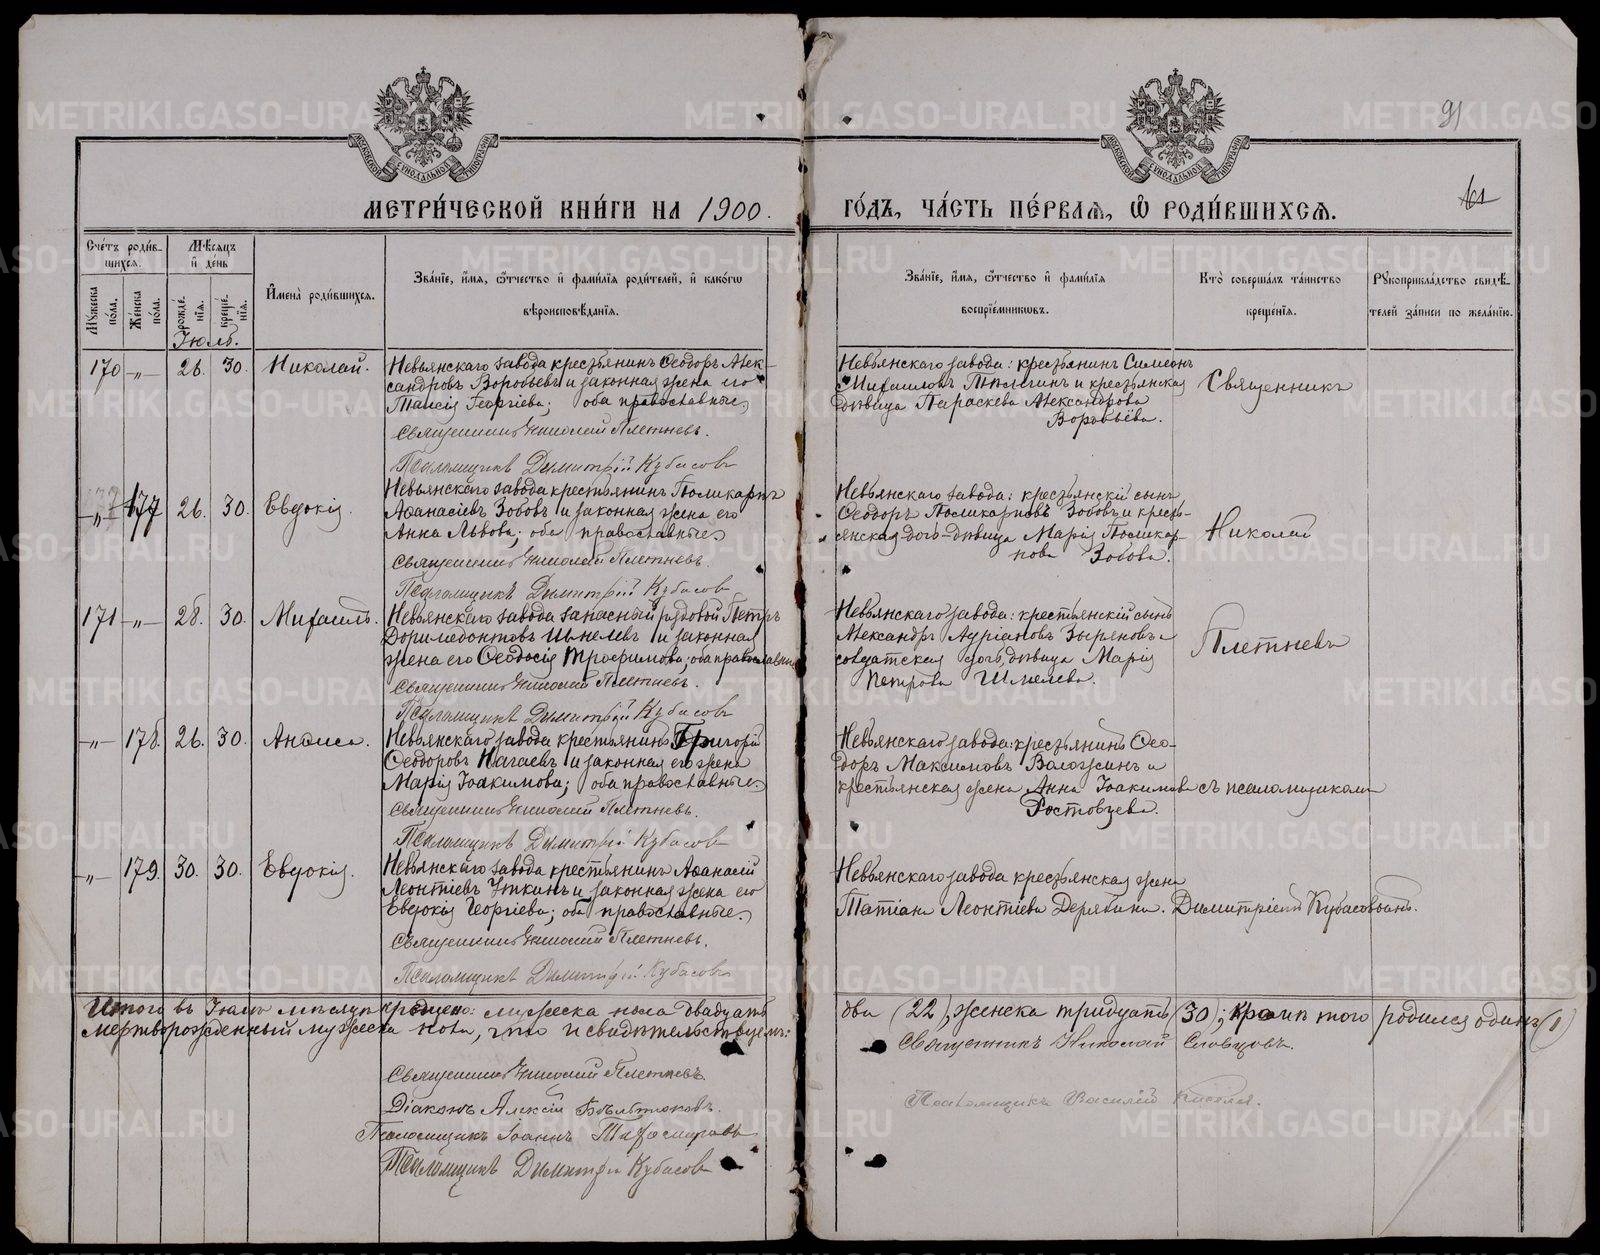 91
61
МЕТРИ́ЧЕСКОЙ КНИ́ГИ НА 1900.
ГО́ДЪ, ЧА́СТЬ ПЕ́РВАЯ, Ѡ҆ РОДИ́ВШИХСЯ.
Сче́тъ роди́в-
шихся.
Мꙋ́жеска по́ла.
Же́нска по́ла.
М́ѣсяцъ
и҆ де́нь
рожде́нїя.
креще́нїя.
И҆мена̀ роди́вшихся.
Зва́нїе, и҆́мя, ѻ҆́тчество и҆ фами́лїя роди́телей, и҆ како́гѡ
вѣроисповѣ́данїя.
Зва́нїе, и҆́мя, ѻ҆́тчество и҆ фами́лїя
воспрїе́мникѡвъ.
Кто̀ соверша́лъ та́инство
креще́нїя.
Рꙋкоприкла́дство свидѣ́-
телей за́писи по жела́нїю.
Іюль.
170 -"- 26. 30. Николай.
Невьянскаго завода крестьянинъ Ѳеодоръ Алек-
сандровъ Воробьевъ и законная жена его
Таисія Георгіева; оба православные.
Священникъ Николай Плетневъ.
Псаломщикъ Димитрій Кубасовъ
Невьянскаго завода: крестьянинъ Симеонъ
Михаиловъ и крестьянская
дѣвица Параскева Александрова
Воробьёва.
Священникъ
-"- 177 26. 30. Евдокія.
Невьянскаго завода крестьянинъ Поликарпъ
Аѳанасіевъ Зобовъ и законная жена его
Анна Львова; оба православные.
Священникъ Николай Плетневъ.
Псаломщикъ Димитрій Кубасов
Невьянскаго завода: крестьянскій сынъ
Ѳеодоръ Поликарповъ Зобовъ и кресть-
янская дочь-дѣвица Марія Поликар-
пова Зобова.
Николай
171 -"- 28. 30. Михаилъ.
Невьянскаго завода запасный рядовой Петръ
Доримедонтовъ Шмелевъ и законная
жена его Ѳеодосія Трофимова; оба православные
Священникъ Николай Плетневъ.
Псаломщикъ Димитрій Кубасовъ
Невьянскаго завода: крестьянскій сынъ
Александръ Адріановъ Зыряновъ и
солдатская дочь, дѣвица Марія
Петрова Шмелева.
Плетневъ
-"- 178. 26. 30. Анѳиса.
Невьянскаго завода крестьянинъ Григорій
Ѳеодоровъ Нагаевъ и законная его жена
Марія Іоакимова; оба православные.
Священникъ Николай Плетневъ.
Псаломщикъ Димитрій Кубасовъ
Невьянскаго завода: крестьянинъ Ѳео-
доръ Максимовъ Воложинъ и
крестьянская жена Анна Іоакимова
Ростовцева.
съ псаломщикомъ
-"- 179. 30. 30. Евдокія.
Невьянскаго завода крестьянинъ Аѳанасій
Леонтіевъ Уткинъ и законная жена его
Евдокія Георгіева; оба православные.
Священникъ Николай Плетневъ.
Псаломщикъ Димитрій Кубасовъ
Невьянскаго завода крестьянская жена
Татіана Леонтіева Дерябина.
Димитріемъ Кубасовымъ.
Итого въ Іюлѣ мѣсяцѣ крещено: мужеска пола двадцать
два (22), женска тридцать (30); кромѣ того родился одинъ (1)
мертворожденный мужеска пола, что и свидѣтельствуемъ:
Священникъ Николай Словцовъ.
Священникъ Николай Плетневъ.
Діаконъ Алексій
Псаломщикъ Іоаннъ Тихомировъ
Псаломщикъ Димитрій Кубасовъ
Псаломщикъ Василій
METRIKI.GASO-URAL.RU